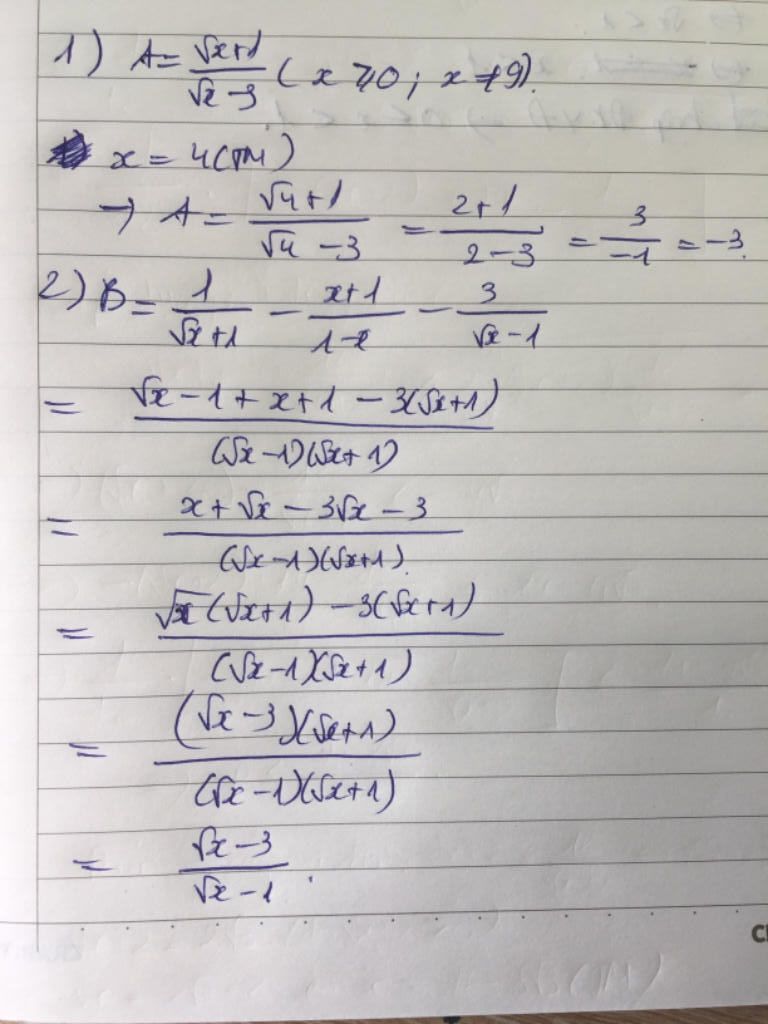 1) A = \frac{√x+1}{√x-3} ( x ⩾ 0 ; x ≠ 9).
x = 4 (TM)
→ A = \frac{√4+1}{√4-3} = \frac{2+1}{2-3} = \frac{3}{-1} = -3.
2) B = \frac{1}{√x+1} - \frac{x+1}{1-x} - \frac{3}{√x-1}
= \frac{√x-1+x+1-3(√x+1)}{(√x-1)(√x+1)}
= \frac{x+√x-3√x-3}{(√x-1)(√x+1)}
= \frac{√x(√x+1)-3(√x+1)}{(√x-1)(√x+1)}
= \frac{(√x-3)(√x+1)}{(√x-1)(√x+1)}
= \frac{√x-3}{√x-1}.